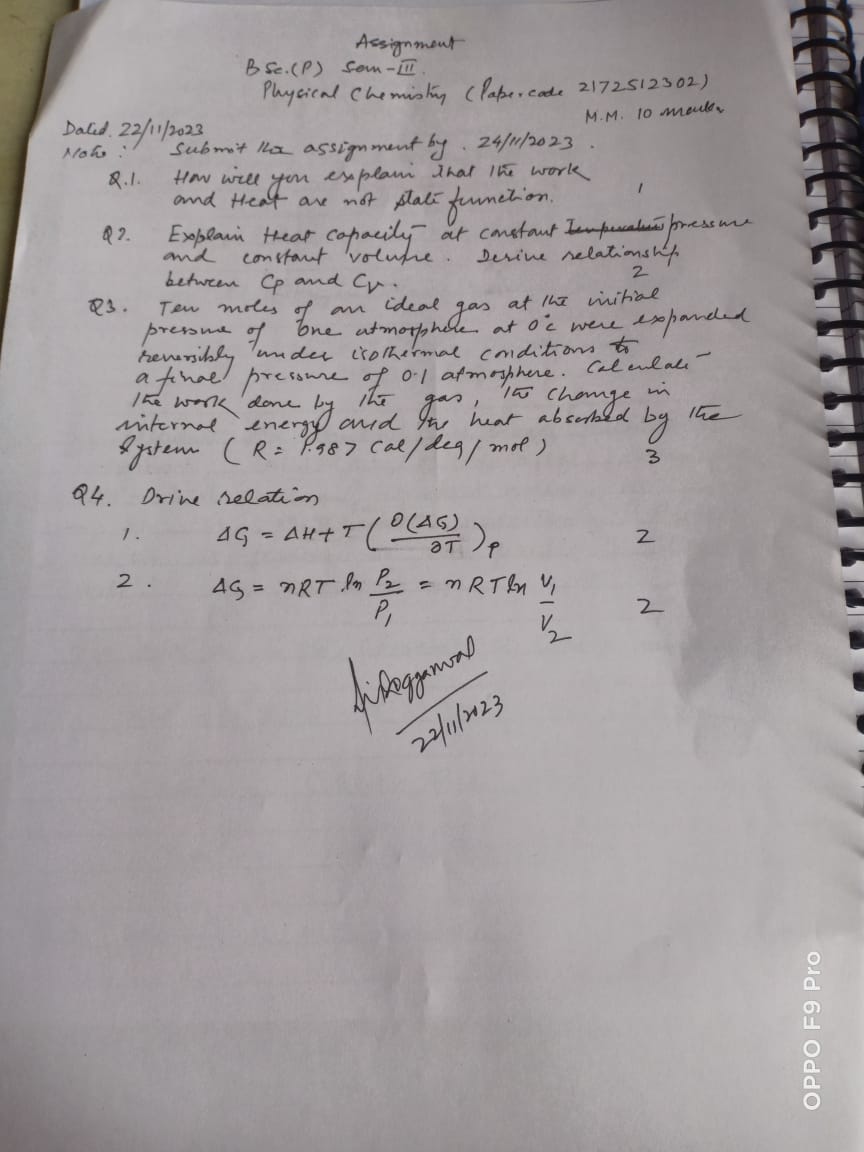 Assignment
B Sc.(P) Sem-III.
Physical Chemistry (Paper code 2172512302)
M.M. 10 marks
Dated. 22/11/2023
Note : Submit the assignment by . 24/11/2023 .
Q.1. How will you explain that the work
and Heat are not state function. 1
Q2. Explain Heat capacity at constant Temperature pressure
and constant volume. Derive relationship
between Cp and Cv. 2
Q3. Ten moles of an ideal gas at the initial
pressure of one atmosphere at 0°c were expanded
reversibly under isothermal conditions to
a final pressure of 0.1 atmosphere. Calculate
the work done by the gas, the change in
internal energy and the heat absorbed by the
System ( R = 1.987 Cal/deg/mol ) 3
Q4. Drive relation
1. ΔG = ΔH + T ( ∂(ΔG) / ∂T )p 2
2. ΔG = nRT ln P2/P1 = nRT ln V1/V2 2
22/11/2023
OPPO F9 Pro